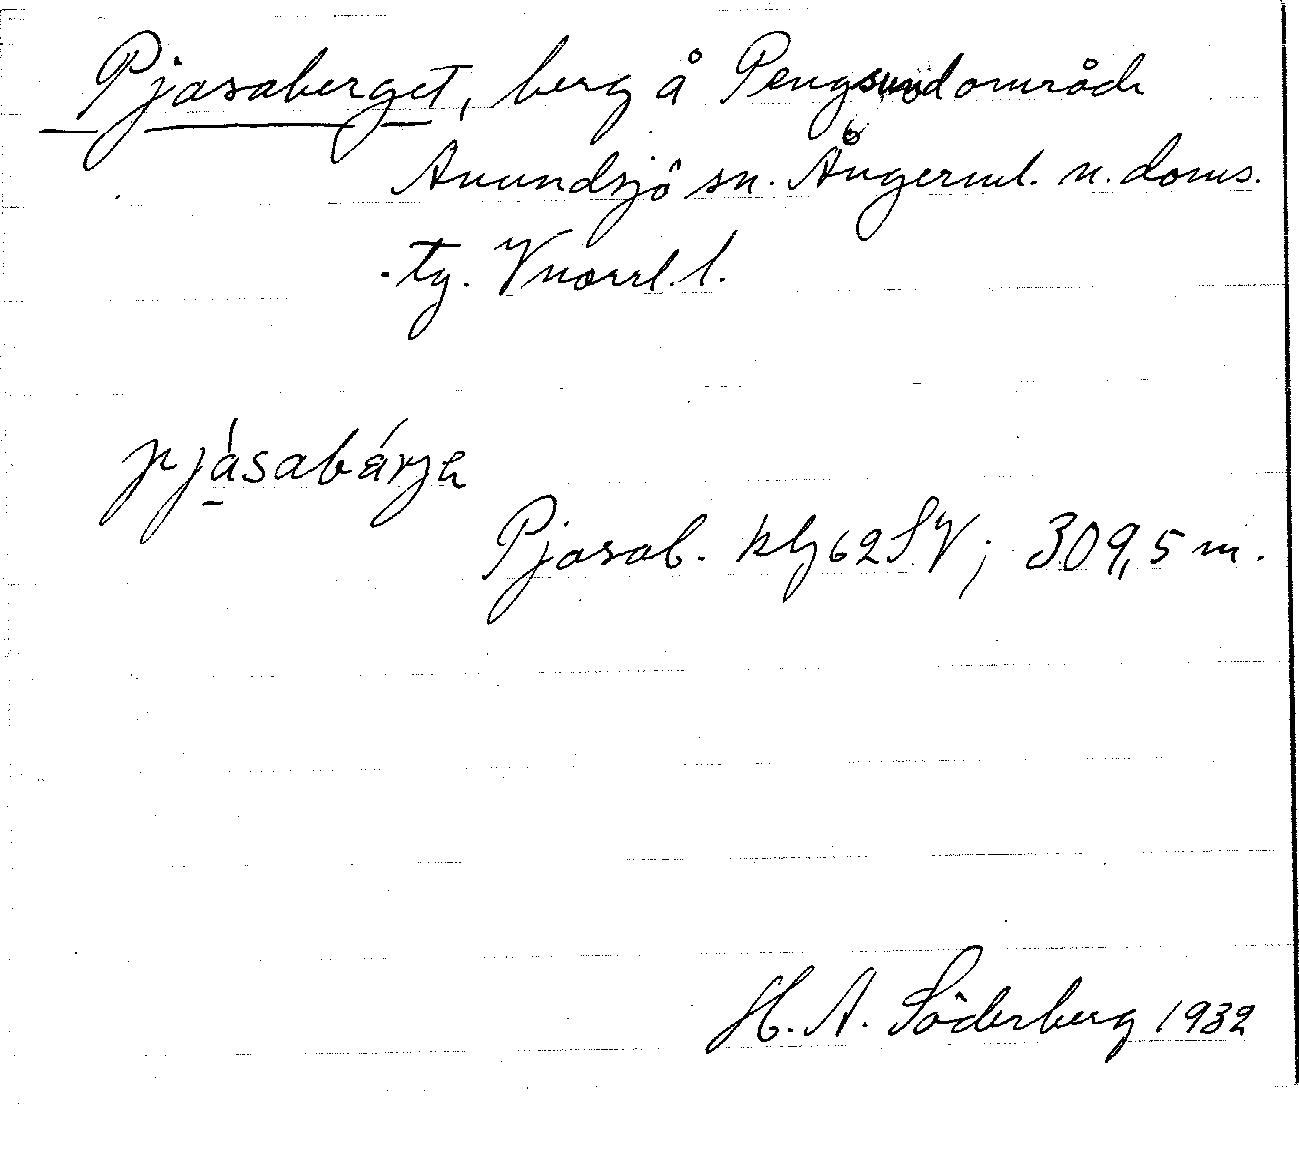 Pjasaberget, berg å Pengsundområde
Anundsjö sn. Ångerml. n. doms.
-tg. Vnorrl. l.
pjásabárja
Pjasab. kbl 62 SV; 309,5 m.
H. A. Söderberg 1932